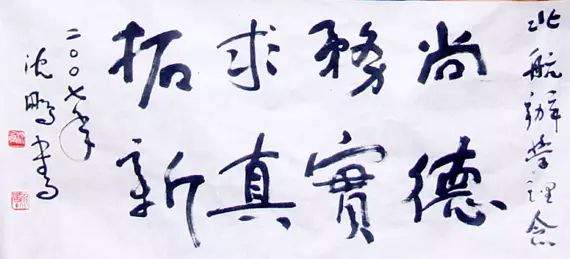 北航辦學理念
尚德
務實
求真
拓新
二〇〇七年
沈鵬書